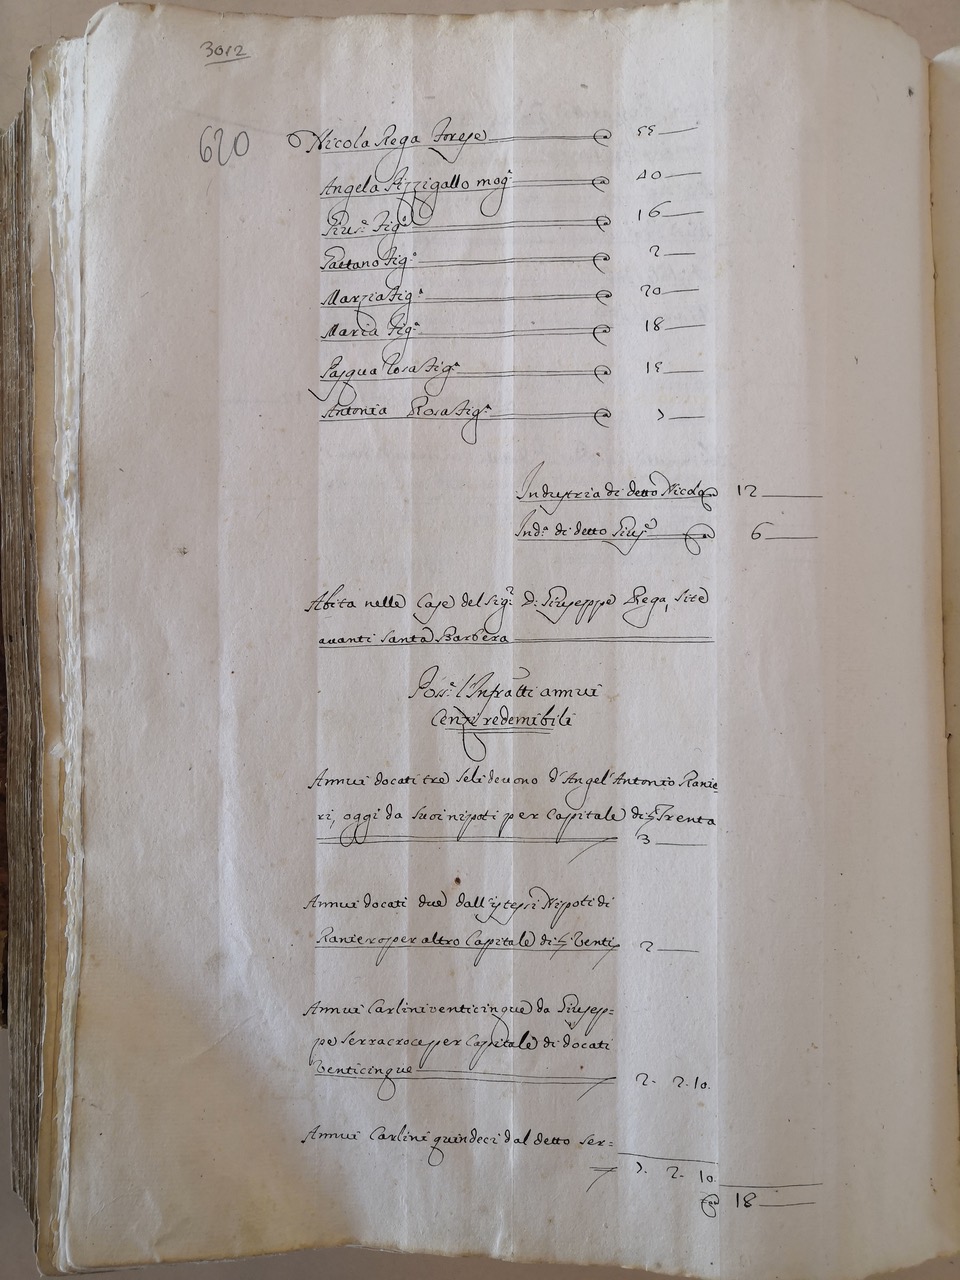 3012
620
Nicola Rega Forese 55
Angela Pizzigallo mog.e 40
Gius.e Fig.o 16
Gaetano Fig.o 2
Marzia Fig.a 20
Maria Fig.a 18
Pasqua Rosa Fig.a 15
Antonia Rosa Fig.a 7
Industria di detto Nicola 12
Ind.a di detto Gius.e 6
Abita nelle Case del Sig.r D. Giuseppe Rega, site
avanti Santa Barbera
Poss.e l'Infratti annui
Cenzi redemibili
Annui docati tre seli devono d'Angel'Antonio Ranie=
ri, oggi da suoi nipoti per Capitale di Trenta
3
Annui docati due dall'istessi Nipoti di
Raniero per altro Capitale di Venti 2
Annui Carlini venticinque da Giusep=
pe Serracroce per Capitale di docati
venticinque 2. 2. 10.
Annui Carlini quindeci dal detto Ser=
7. 2. 10.
18